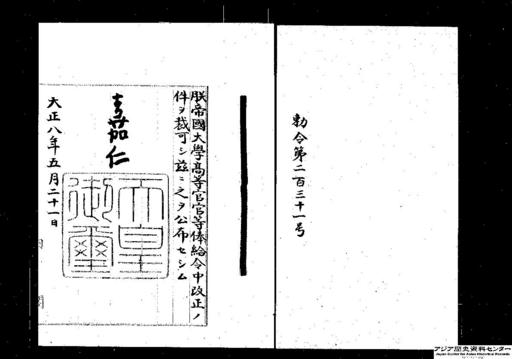 勅令第二百三十一号
朕帝國大學高等官官等俸給令中改正ノ
件ヲ裁可シ茲ニ之ヲ公布セシム
嘉仁
天皇
御璽
大正八年五月二十一日
アジア歴史資料センター
Japan Center for Asian Historical Records